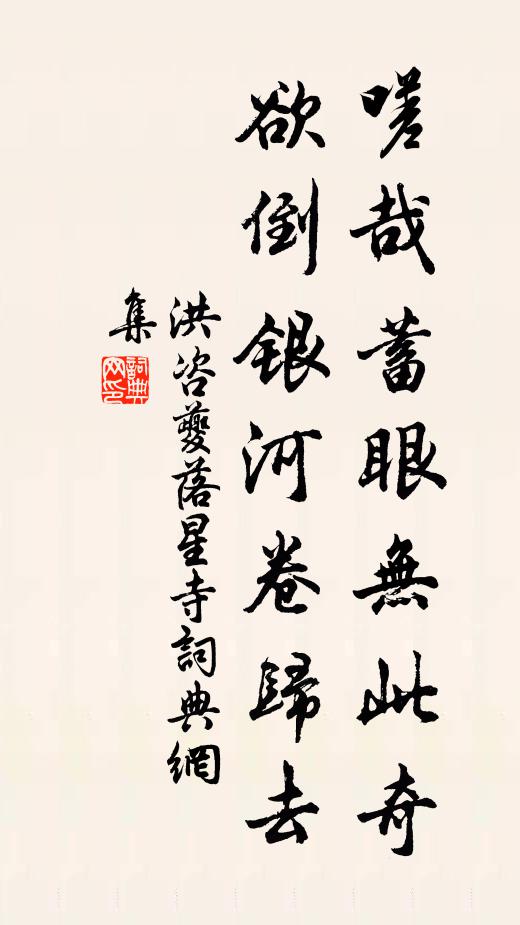 嗟哉蓄眼無此奇
欲倒銀河卷歸去
洪咨夔落星寺詞典網
集
詞典網印